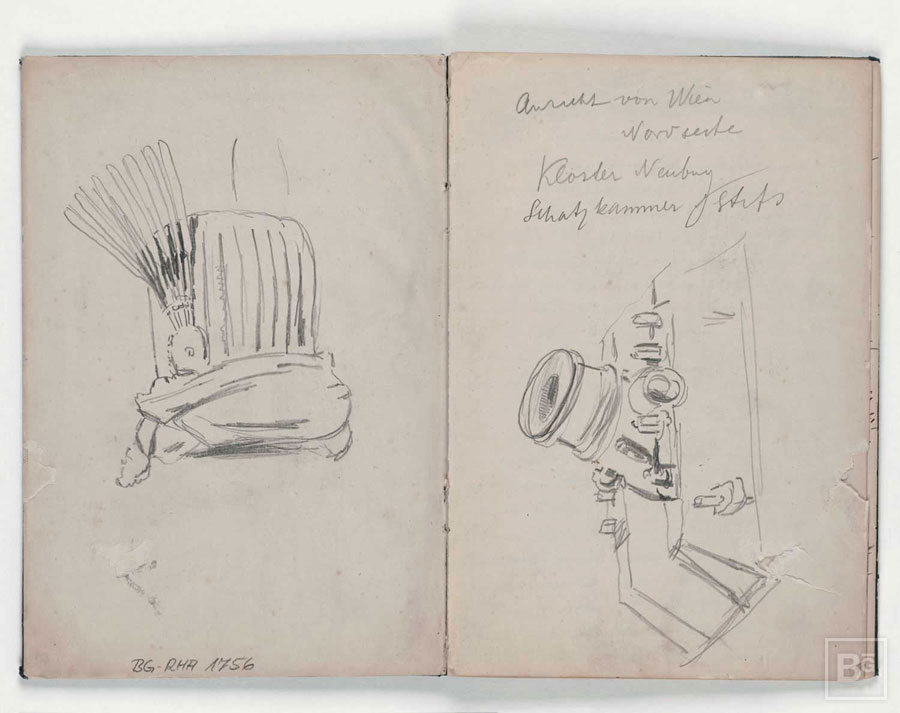 BG-RHA 1756
Ansicht von Wien
Nordseite
Kloster Neuburg
Schatzkammer Stifts
BG